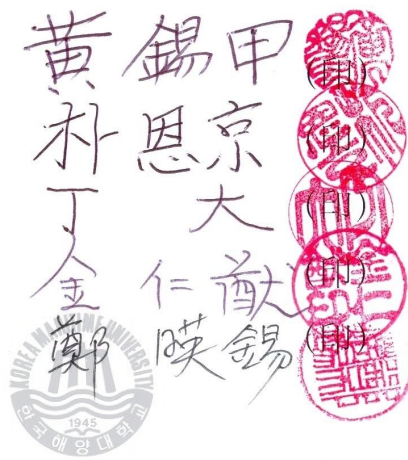 黃 錫 甲 (印)
朴 恩 京 (印)
丁 大 (印)
金 仁 猷 (印)
鄭 暎 錫 (印)
KOREA MARITIME UNIVERSITY
1945
한국해양대학교